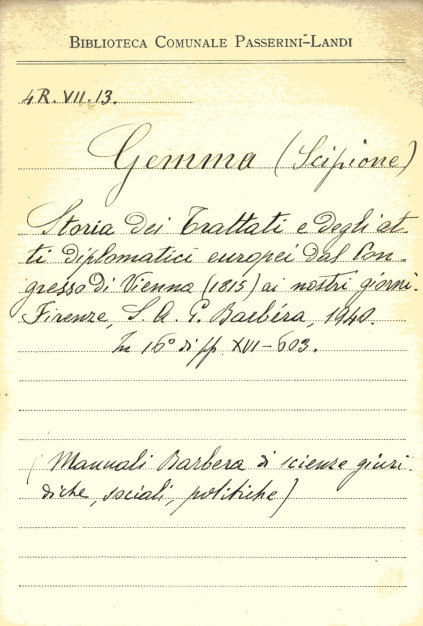 BIBLIOTECA COMUNALE PASSERINI-LANDI
4R. VII. 13.
Gemma (Scipione)
Storia dei Trattati e degli at-
ti diplomatici europei dal Con-
gresso di Vienna (1815) ai nostri giorni.
Firenze, S. A. G. Barbéra, 1940.
In 16° di pp XVI-603.
(Manuali Barbera di scienze giuri-
diche, sociali, politiche)